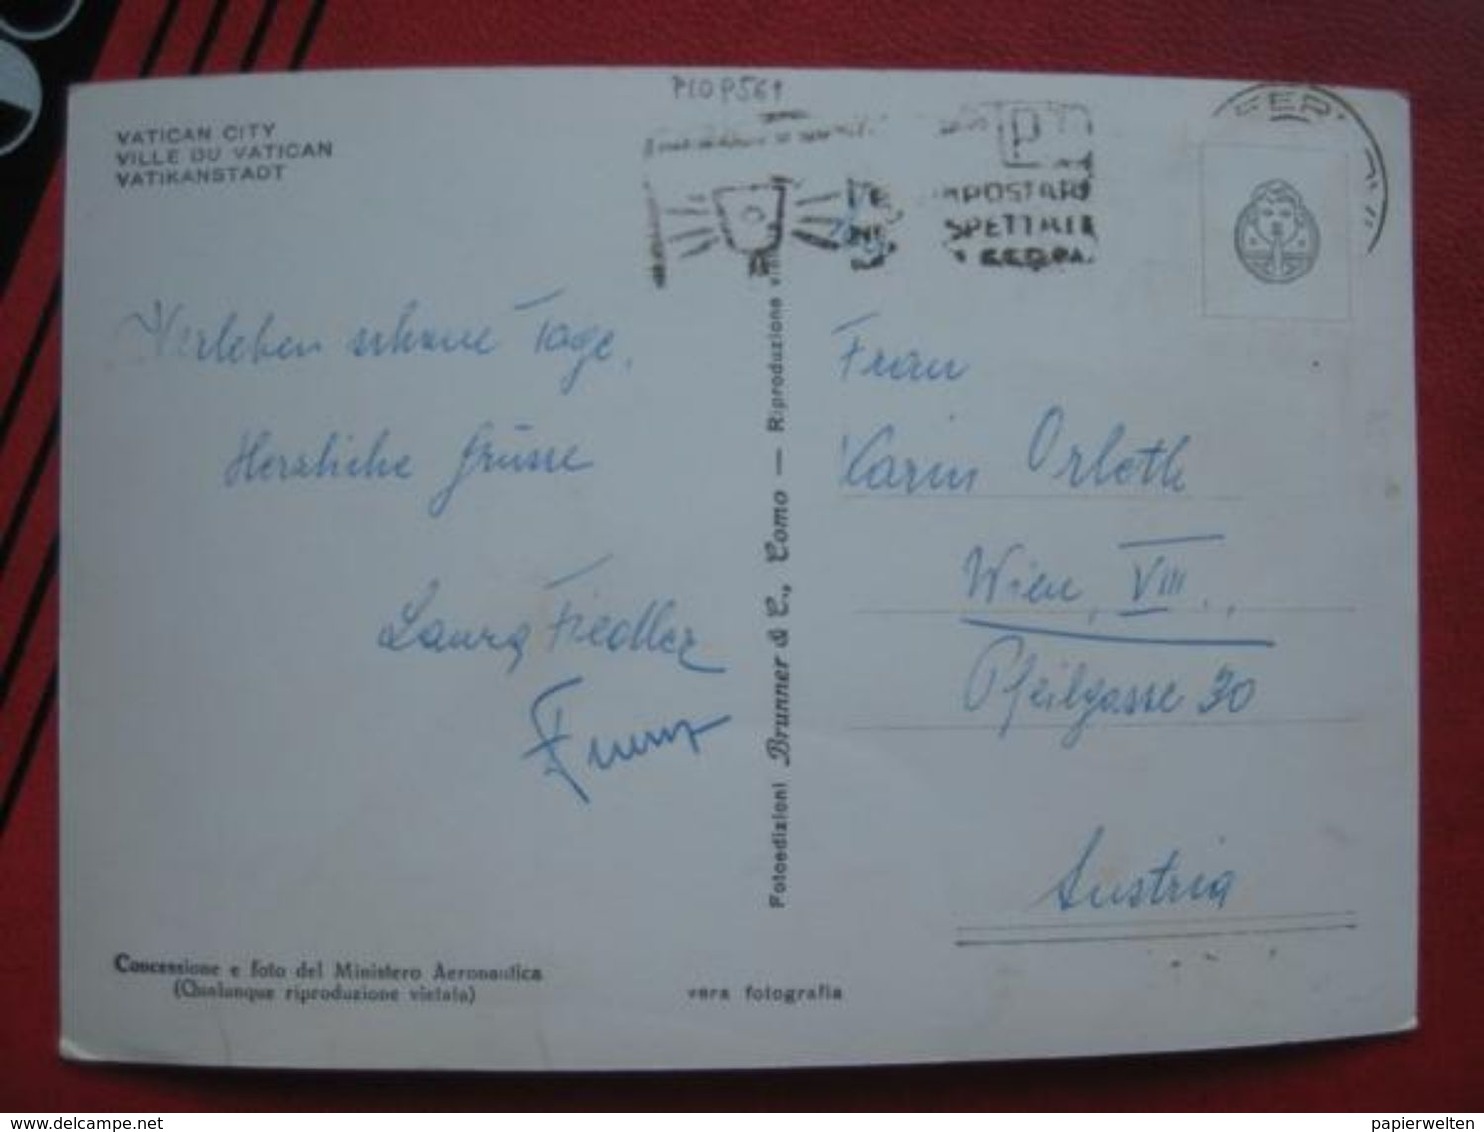 VATICAN CITY
VILLE DU VATICAN
VATIKANSTADT
Verleben schöne Tage.
Herzliche Grüsse
Laura Fiedler
Concessione e foto del Ministero Aeronautica
(Qualunque riproduzione vietata)
vera fotografia
Fotoedizioni Brunner & C., Como — Riproduzione
P
SPETTA
Frau
Karin Orloth
Wien, VIII.,
Pfeilgasse 30
Austria
delcampe.net
papierwelten